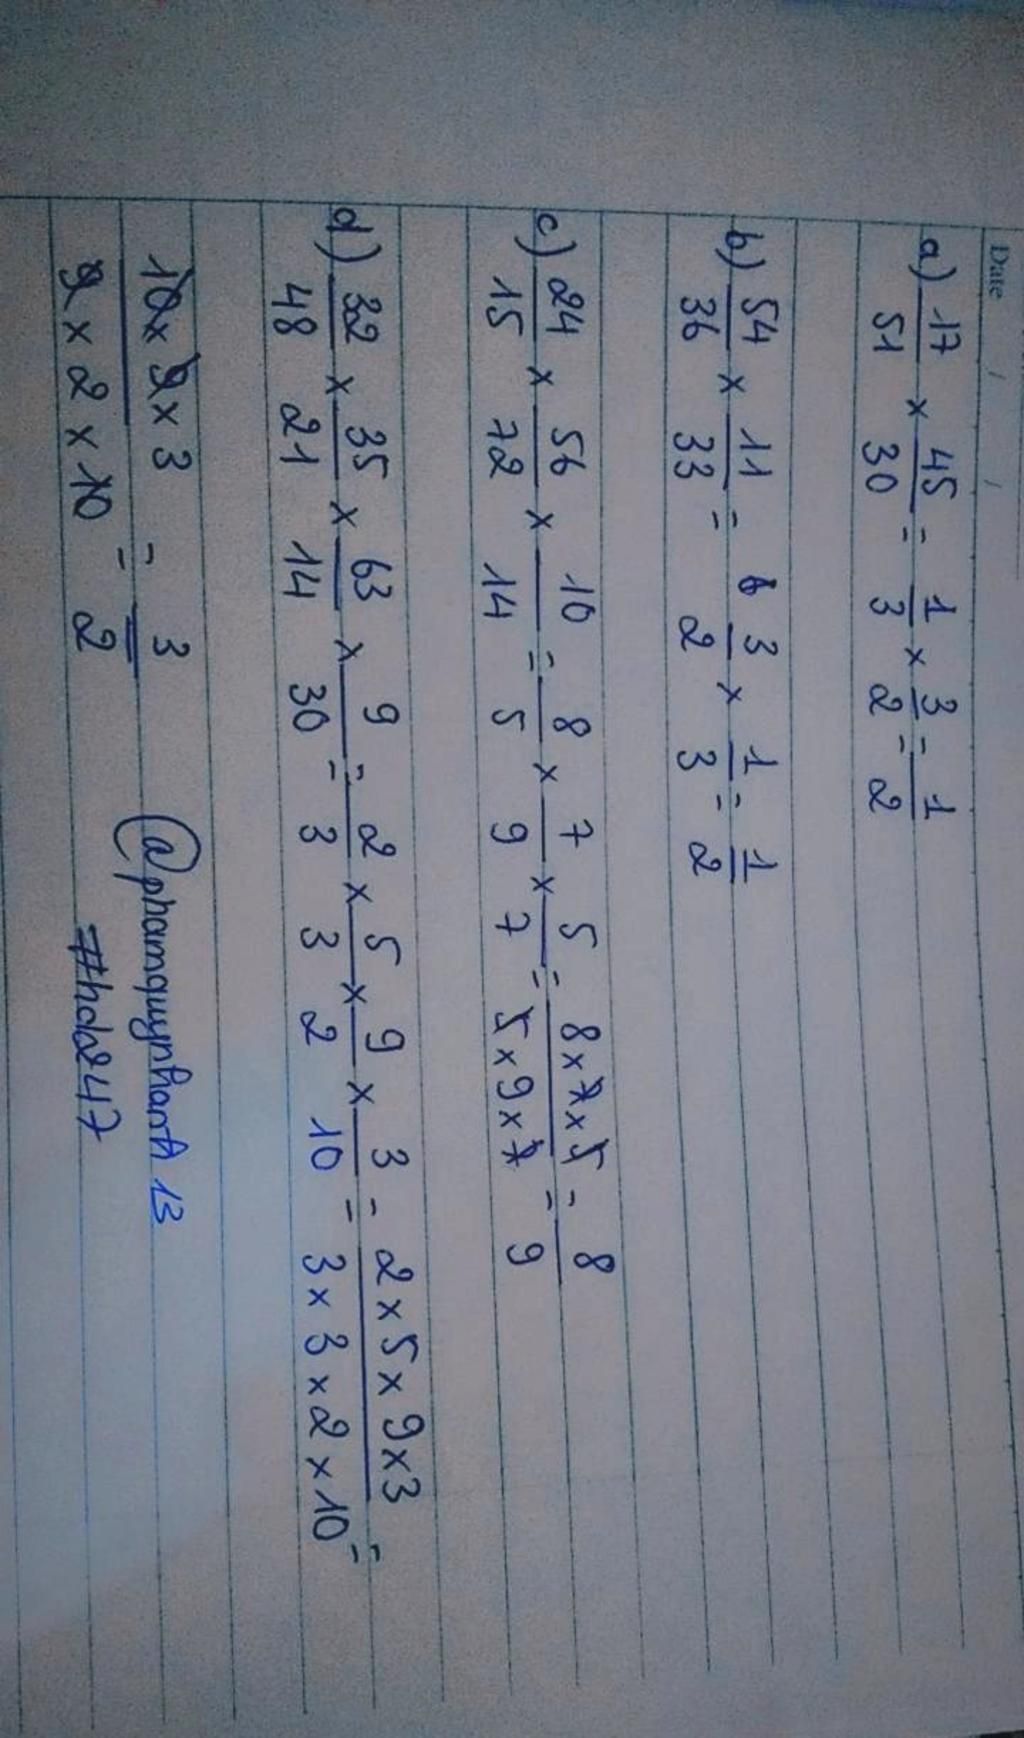 Date / /
a) 17/51 × 45/30 = 1/3 × 3/2 = 1/2
b) 54/36 × 11/33 = 3/2 × 1/3 = 1/2
c) 24/15 × 56/72 × 10/14 = 8/5 × 7/9 × 5/7 = 8×7×5/5×9×7 = 8/9
d) 32/48 × 35/21 × 63/14 × 9/30 = 2/3 × 5/3 × 9/2 × 3/10 = 2×5×9×3/3×3×2×10 =
10×9×3/9×2×10 = 3/2
@phamquynhanh13
#hdh247